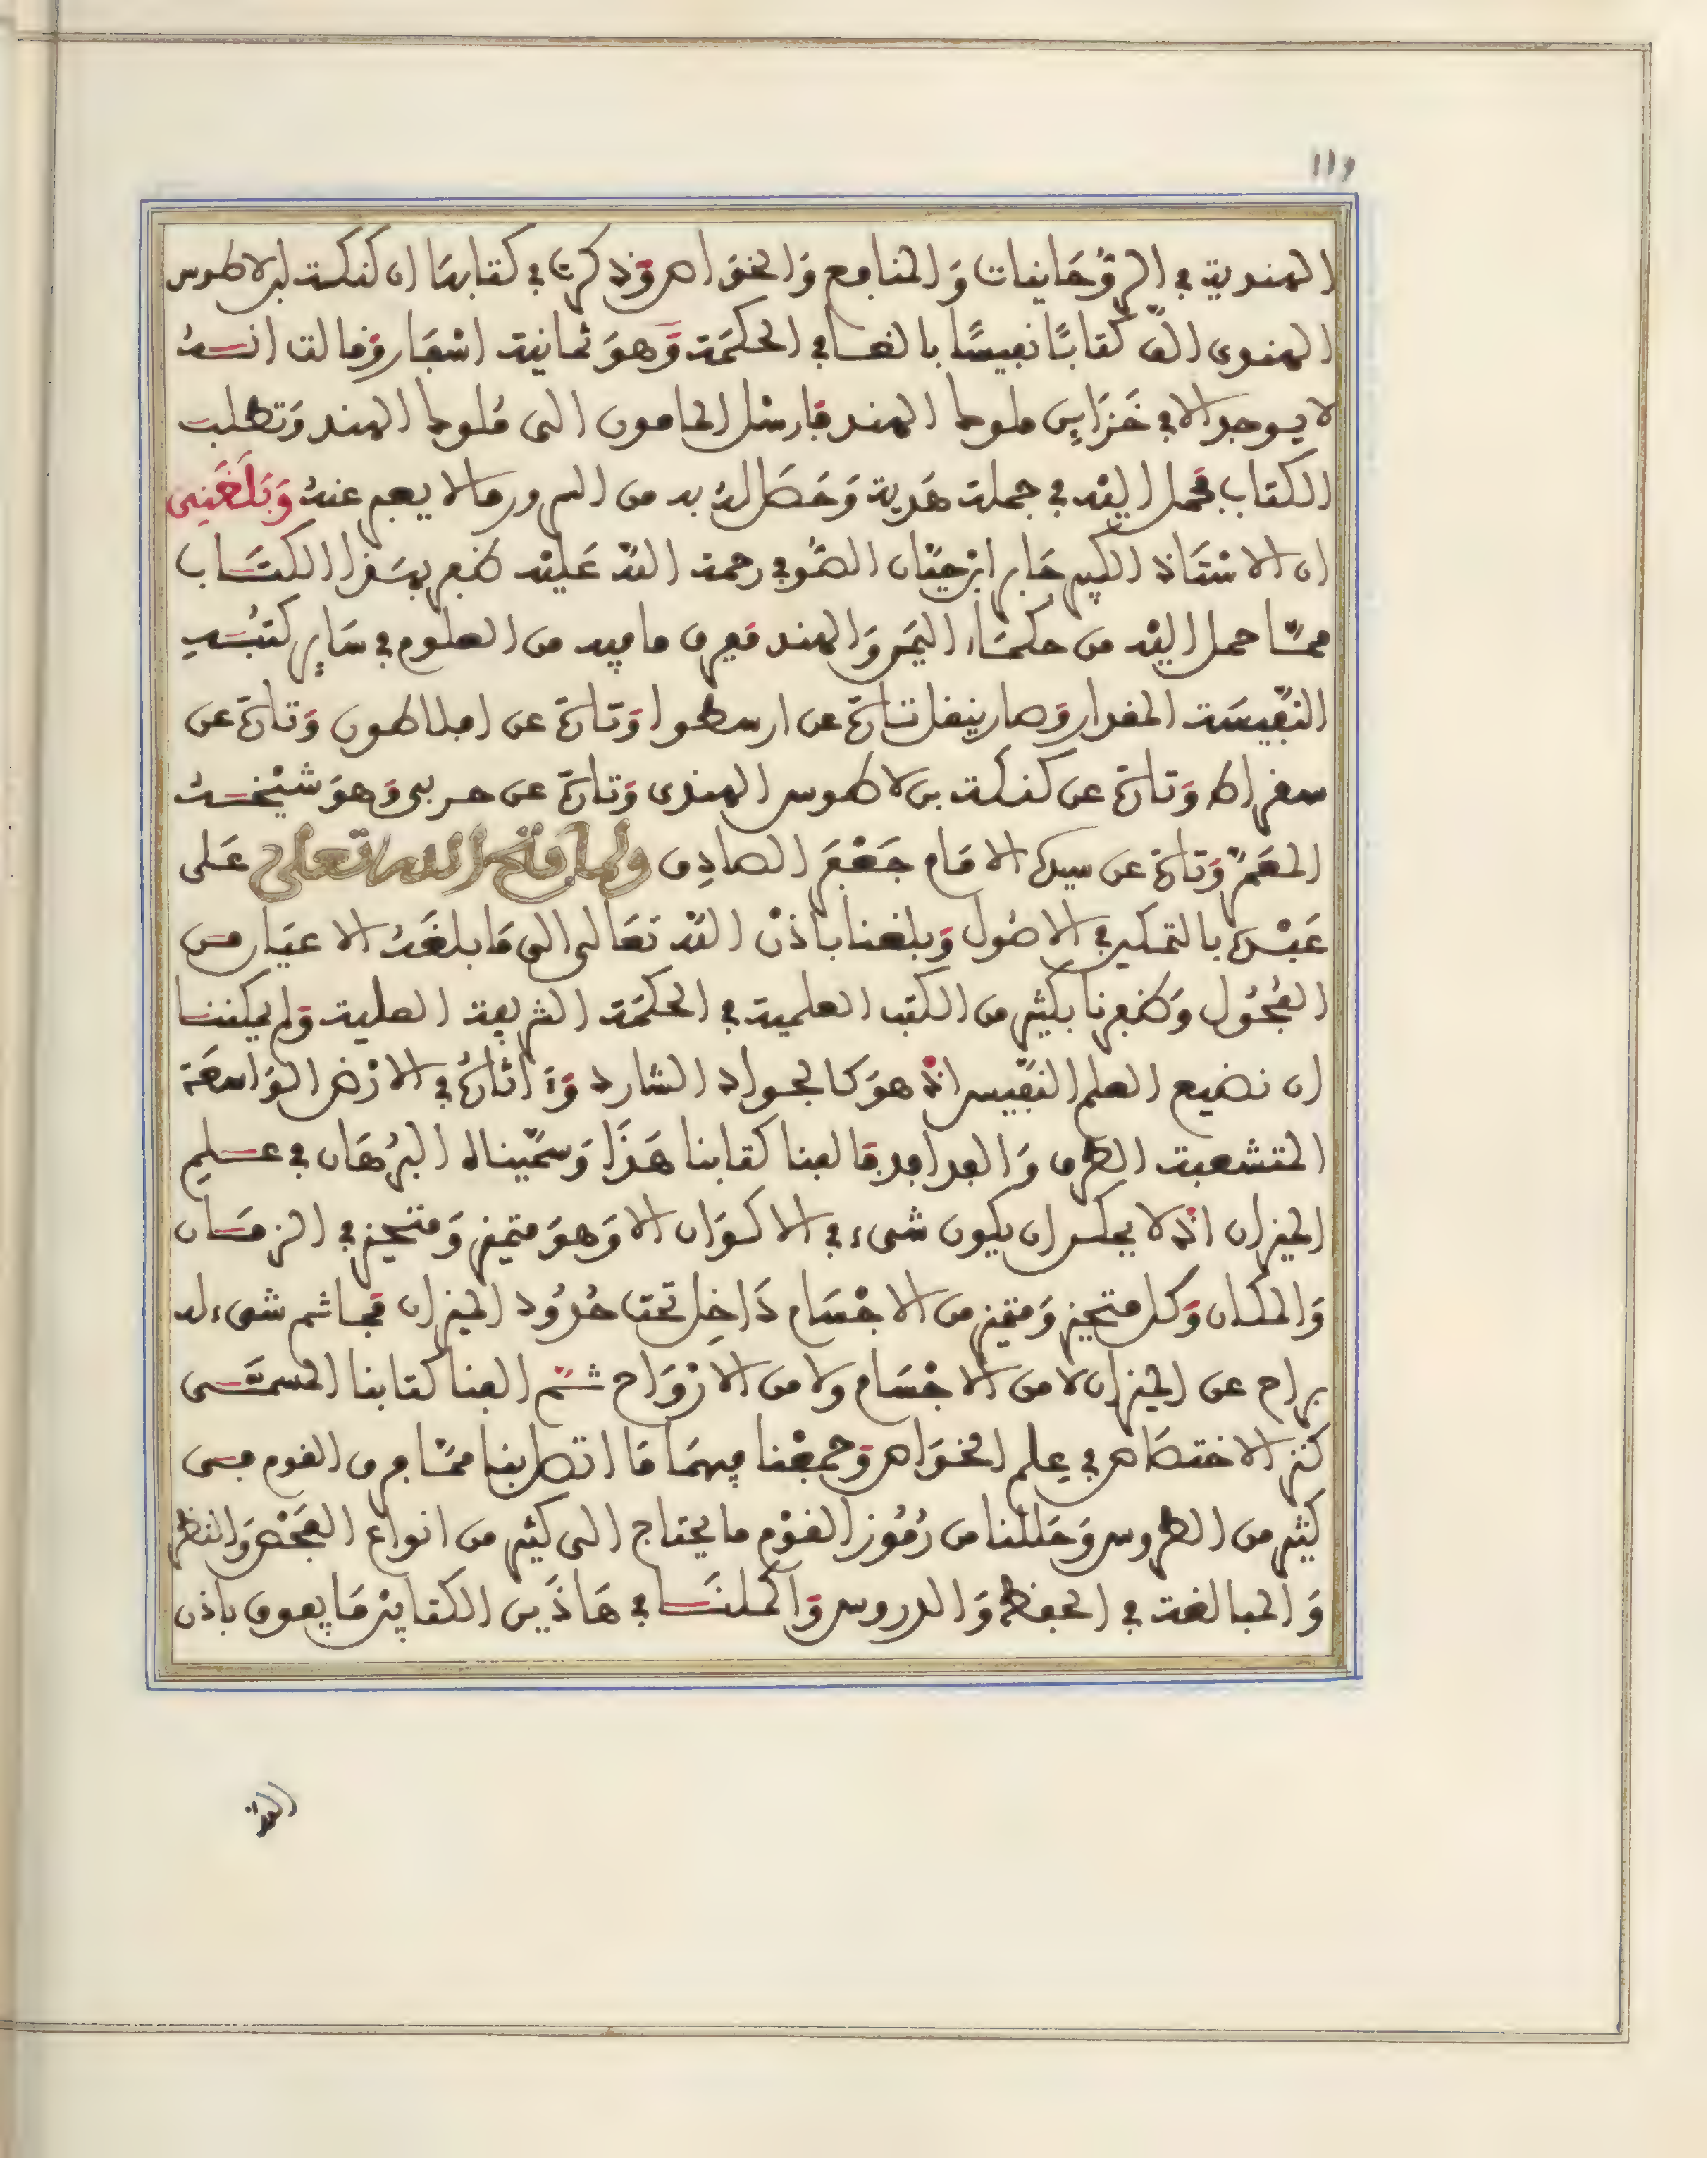 ١١٩
الهندية في الروحانيات وَالمنافع وَالخوَاص وَذكرت في كتابهَا ان كنكة لبلاطوس
الهندى الف كتابًا نفيسًا بالغا في الحكمَة وَهوَ ثمانية اسْفار وَقالت انه
لا يوجد الا في خَزَاين ملوك الهند فارسْل المامون الى مُلوك الهند وَتطلب
الكتاب فحمل اليْه في جملة هَدية وَحَصَل لهُ به من السرور ما لا يعبر عنهُ وَبَلَغَنِى
ان الاسْتَاذ الكبير جَابر ابْن حيَّان الصُّوفي رحمة اللّه عَليْه ظفر بهَذا الكتَاب
ممَّا حمل اليْه من حكمَاء اليمَن وَالهند فعرف ما فيه من العلوم في سَايِر كتبُهِ
النَّفِيسَة المقدار وَصار ينقل تارَة عن ارسطوا وَتَارَة عن افلاطون وَتارَة عن
سقراط وَتارَة عن كنكة بن لاطوس الهندى وَتارَة عن حربى وَهوَ شيْخهُ
المعَمَّر وَتارَة عن سيده الامَام جَعْفَر الصادِق ولما فتح الله تعلى عَلى
عَبْده بالتمكين في الاصُول وَبلغنا باذنْ اللّه تعَالى الى مَا بلغَهُ الاعيَان من
الفُحُول وَظفرنا بكثير من الكتب العلمية في الحكمَة الشريفة العلية وَلم يمكننا
ان نضيع العلم النَّفِيس اذ هوَ كالجواد الشارد وَءَاثارُهُ في الارْض الوَاسعَة
المتشعبة الطرق وَالفدافد فالفنا كتابنا هَذَا وَسمَّيناه البُرْهَان في عـلم
الميزان اذ لا يمكن ان يكون شىء في الاكوَان الا وَهوَ متميز وَمتحيز في الزمَان
وَالمكان وَكل متحيز وَمتميز من الاجْسَام دَاخِل تحت حُدُود الميزان فما ثم شىء له
براح عن الميزان لا من الاجْسَام ولا من الارْوَاح ثم الفنا كتابنا المسمَّى
كنز الاختصَاص في عِلم الخوَاص وَجمعْنا فيهمَا مَا اتصل بنا ممَّا عرف القوم من
كثير من الطروس وَحَللنا من رُمُوز القوْم ما يحتاج الى كثير من انواع الفَحْص وَالنظر
وَالمبالغة في الحفظ وَالدروس وَاكملنَا في هَاذَين الكتابيْن مَا يفوق باذن
اللّه